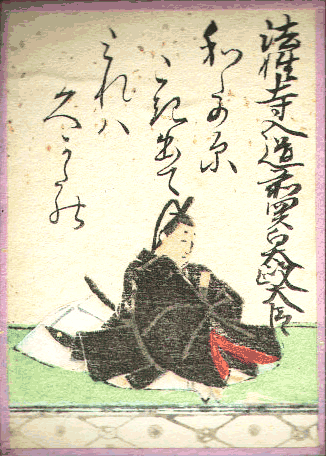 法性寺入道前関白太政大臣
和たの原
こき出て
みれハ
久かたの